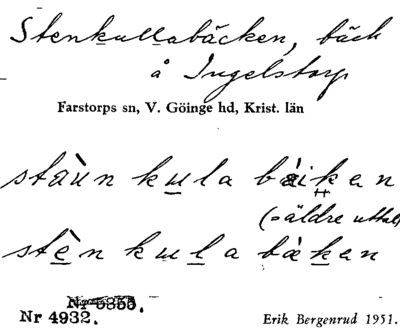 Stenkullabäcken, bäck
å Ingelstorp
Farstorps sn, V. Göinge hd, Krist. län
staùn kula bäiken
(= äldre uttal)
stèn kula bäken
Nr 4932.
Erik Bergenrud 1951.